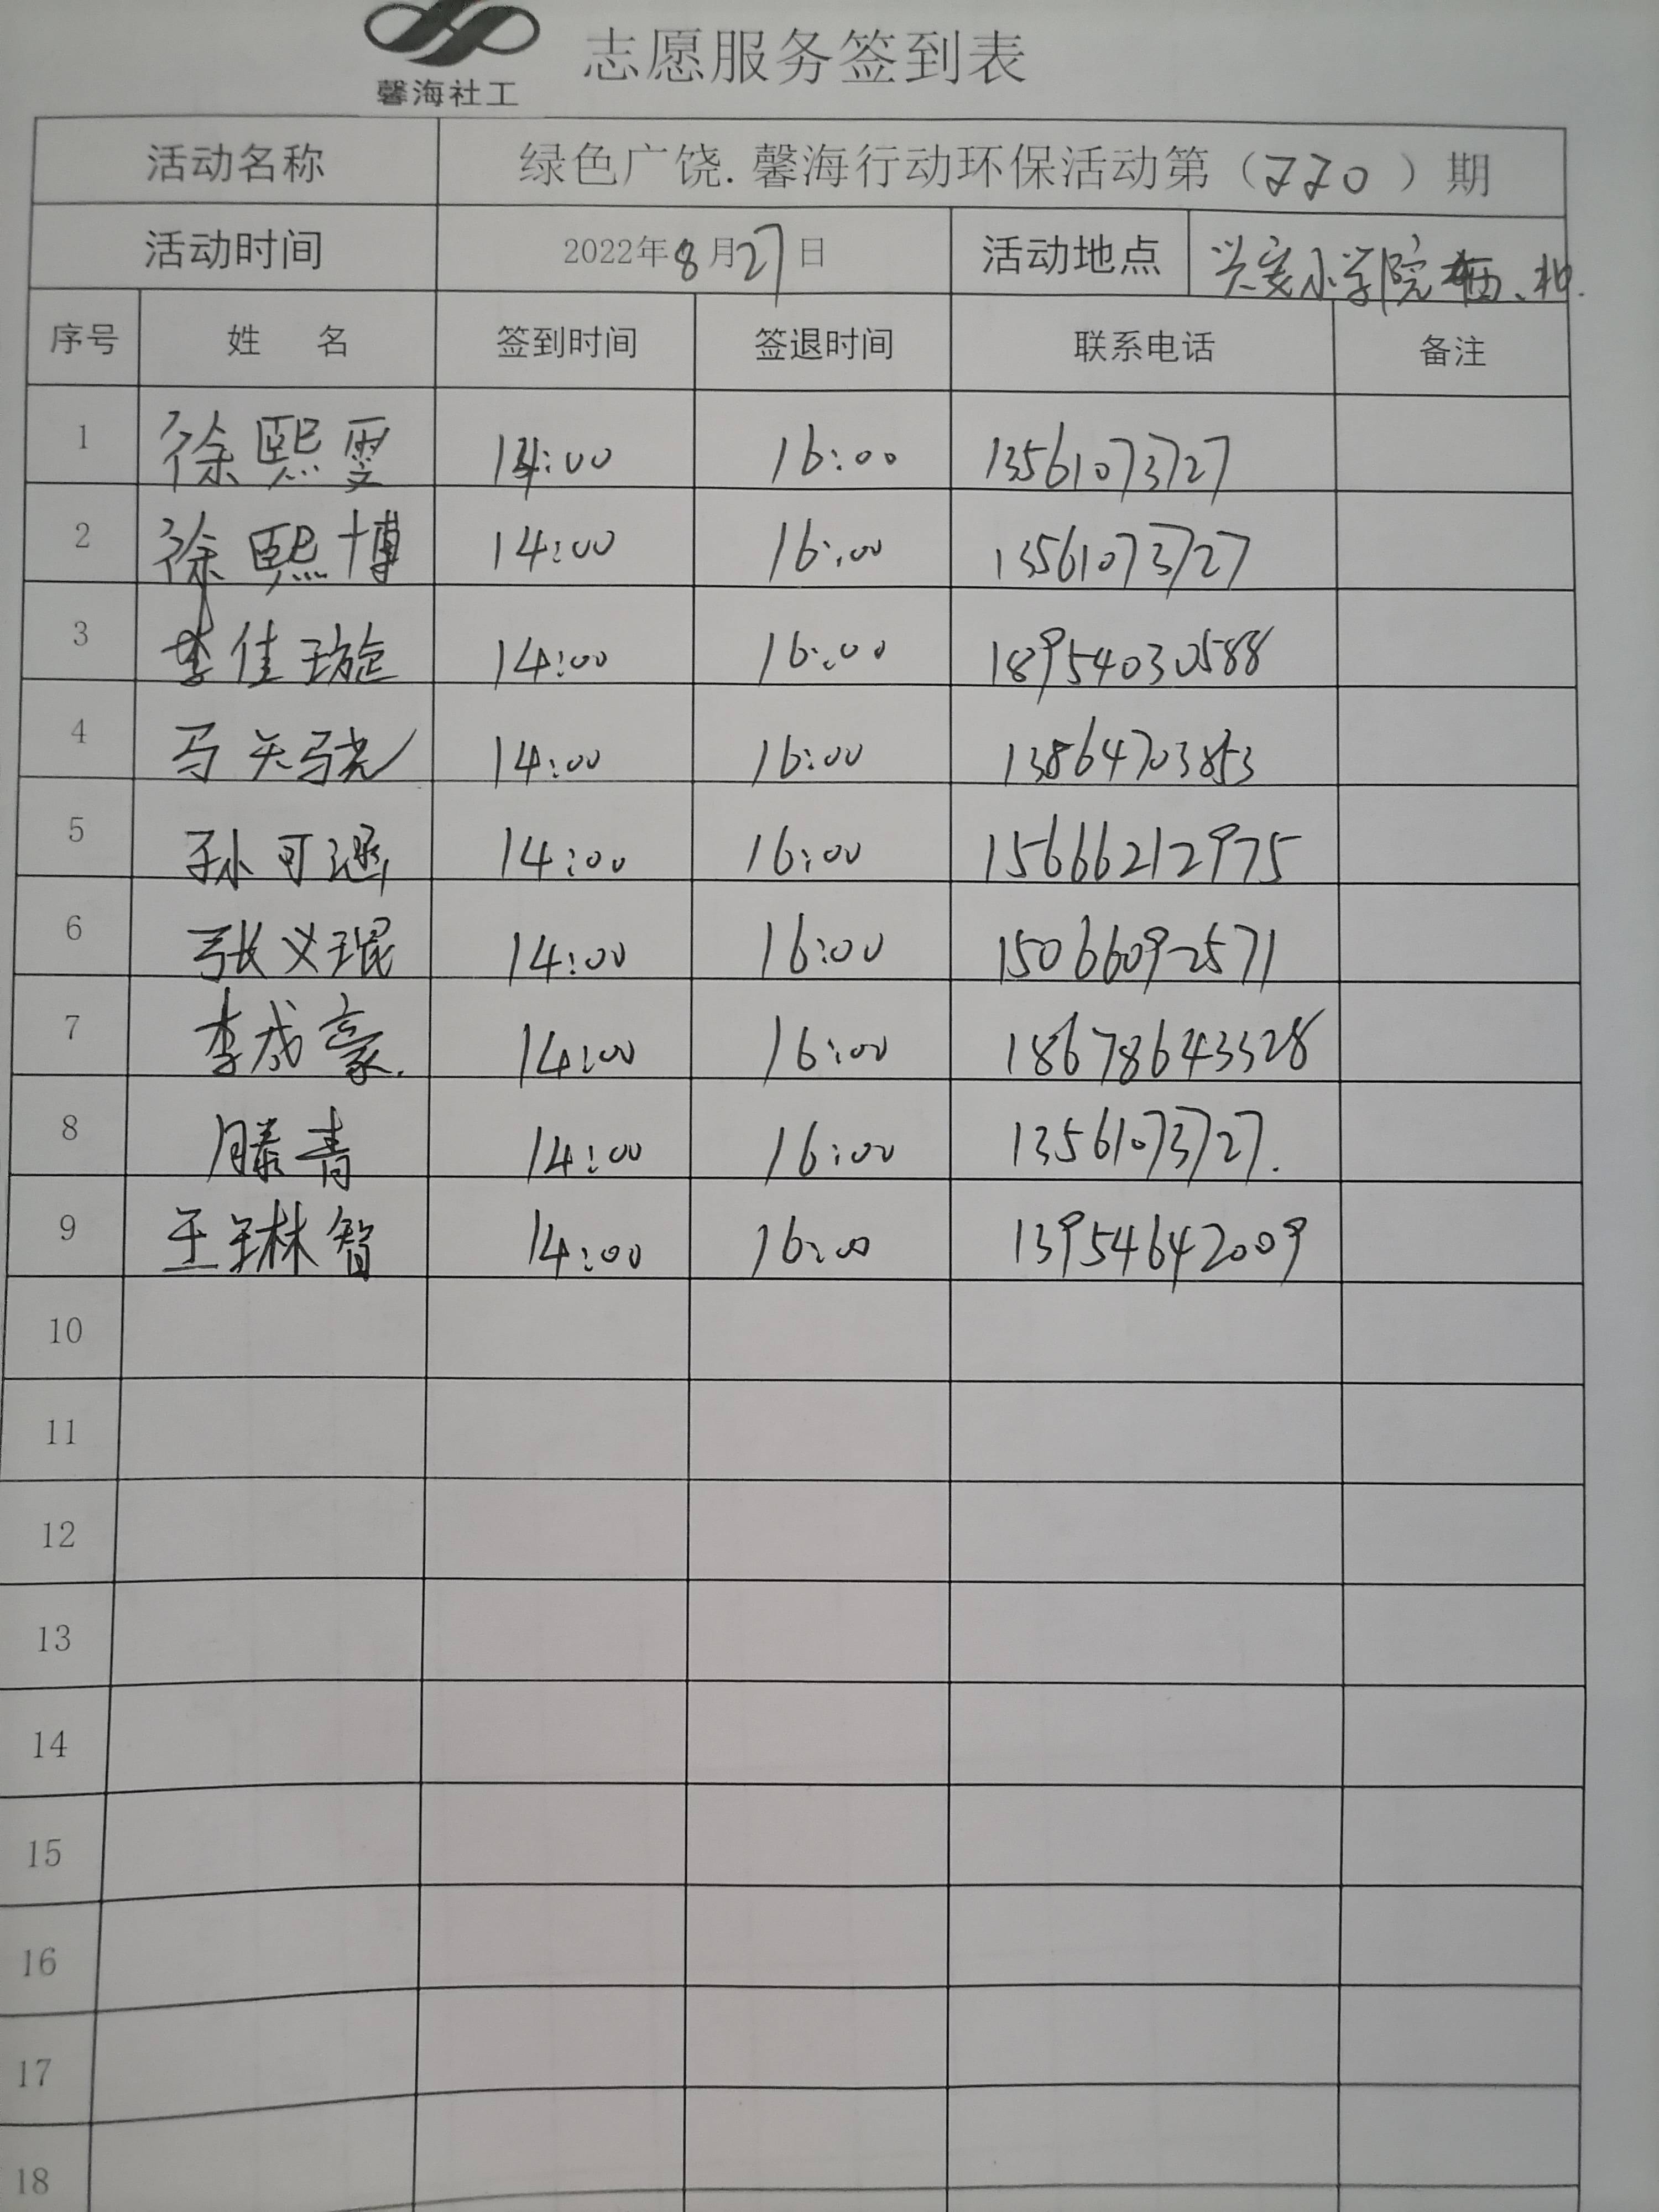 馨海社工
志愿服务签到表
活动名称 绿色广饶.馨海行动环保活动第（220）期
活动时间 2022年8月27日 活动地点 兴安小学院西、北.
序号 姓 名 签到时间 签退时间 联系电话 备注
1 徐熙雯 14:00 16:00 13561073727
2 徐熙博 14:00 16:00 13561073727
3 李佳璇 14:00 16:00 18954030588
4 马天骁 14:00 16:00 13864703853
5 孙可涵 14:00 16:00 15666212975
6 张义琨 14:00 16:00 15066092571
7 李成豪. 14:00 16:00 18678643328
8 滕青 14:00 16:00 13561073727.
9 王琳智 14:00 16:00 13954642009
10
11
12
13
14
15
16
17
18